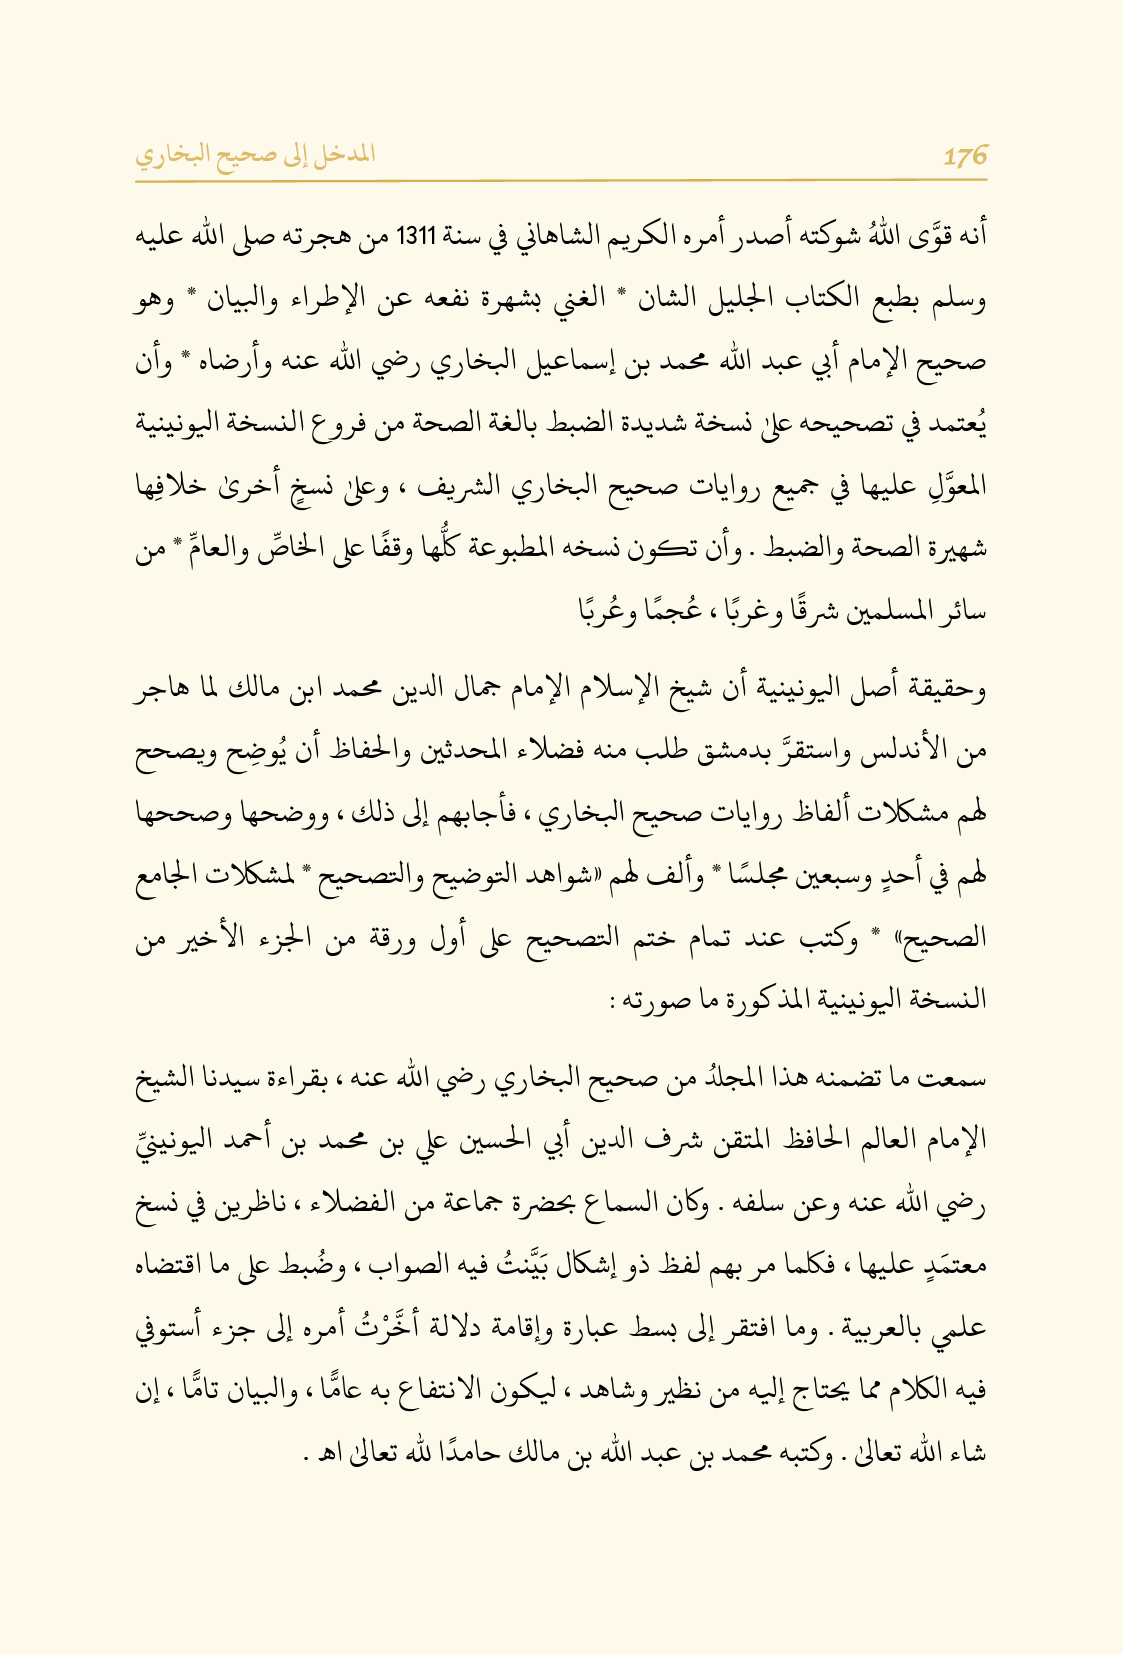 176 المدخل إلى صحيح البخاري
أنه قوَّى اللهُ شوكته أصدر أمره الكريم الشاهاني في سنة 1311 من هجرته صلى الله عليه
وسلم بطبع الكتاب الجليل الشان * الغني بشهرة نفعه عن الإطراء والبيان * وهو
صحيح الإمام أبي عبد الله محمد بن إسماعيل البخاري رضي الله عنه وأرضاه * وأن
يُعتمد في تصحيحه علىٰ نسخة شديدة الضبط بالغة الصحة من فروع النسخة اليونينية
المعوَّلِ عليها في جميع روايات صحيح البخاري الشريف ، وعلىٰ نسخٍ أخرىٰ خلافِها
شهيرة الصحة والضبط . وأن تكون نسخه المطبوعة كلُّها وقفًا على الخاصِّ والعامِّ * من
سائر المسلمين شرقًا وغربًا ، عُجمًا وعُربًا
وحقيقة أصل اليونينية أن شيخ الإسلام الإمام جمال الدين محمد ابن مالك لما هاجر
من الأندلس واستقرَّ بدمشق طلب منه فضلاء المحدثين والحفاظ أن يُوضِح ويصحح
لهم مشكلات ألفاظ روايات صحيح البخاري ، فأجابهم إلى ذلك ، ووضحها وصححها
لهم في أحدٍ وسبعين مجلسًا * وألف لهم «شواهد التوضيح والتصحيح * لمشكلات الجامع
الصحيح» * وكتب عند تمام ختم التصحيح على أول ورقة من الجزء الأخير من
النسخة اليونينية المذكورة ما صورته :
سمعت ما تضمنه هذا المجلدُ من صحيح البخاري رضي الله عنه ، بقراءة سيدنا الشيخ
الإمام العالم الحافظ المتقن شرف الدين أبي الحسين علي بن محمد بن أحمد اليونينيِّ
رضي الله عنه وعن سلفه . وكان السماع بحضرة جماعة من الفضلاء ، ناظرين في نسخ
معتمَدٍ عليها ، فكلما مر بهم لفظ ذو إشكال بَيَّنتُ فيه الصواب ، وضُبط على ما اقتضاه
علمي بالعربية . وما افتقر إلى بسط عبارة وإقامة دلالة أخَّرْتُ أمره إلى جزء أستوفي
فيه الكلام مما يحتاج إليه من نظير وشاهد ، ليكون الانتفاع به عامًّا ، والبيان تامًّا ، إن
شاء الله تعالىٰ . وكتبه محمد بن عبد الله بن مالك حامدًا لله تعالىٰ اهـ .